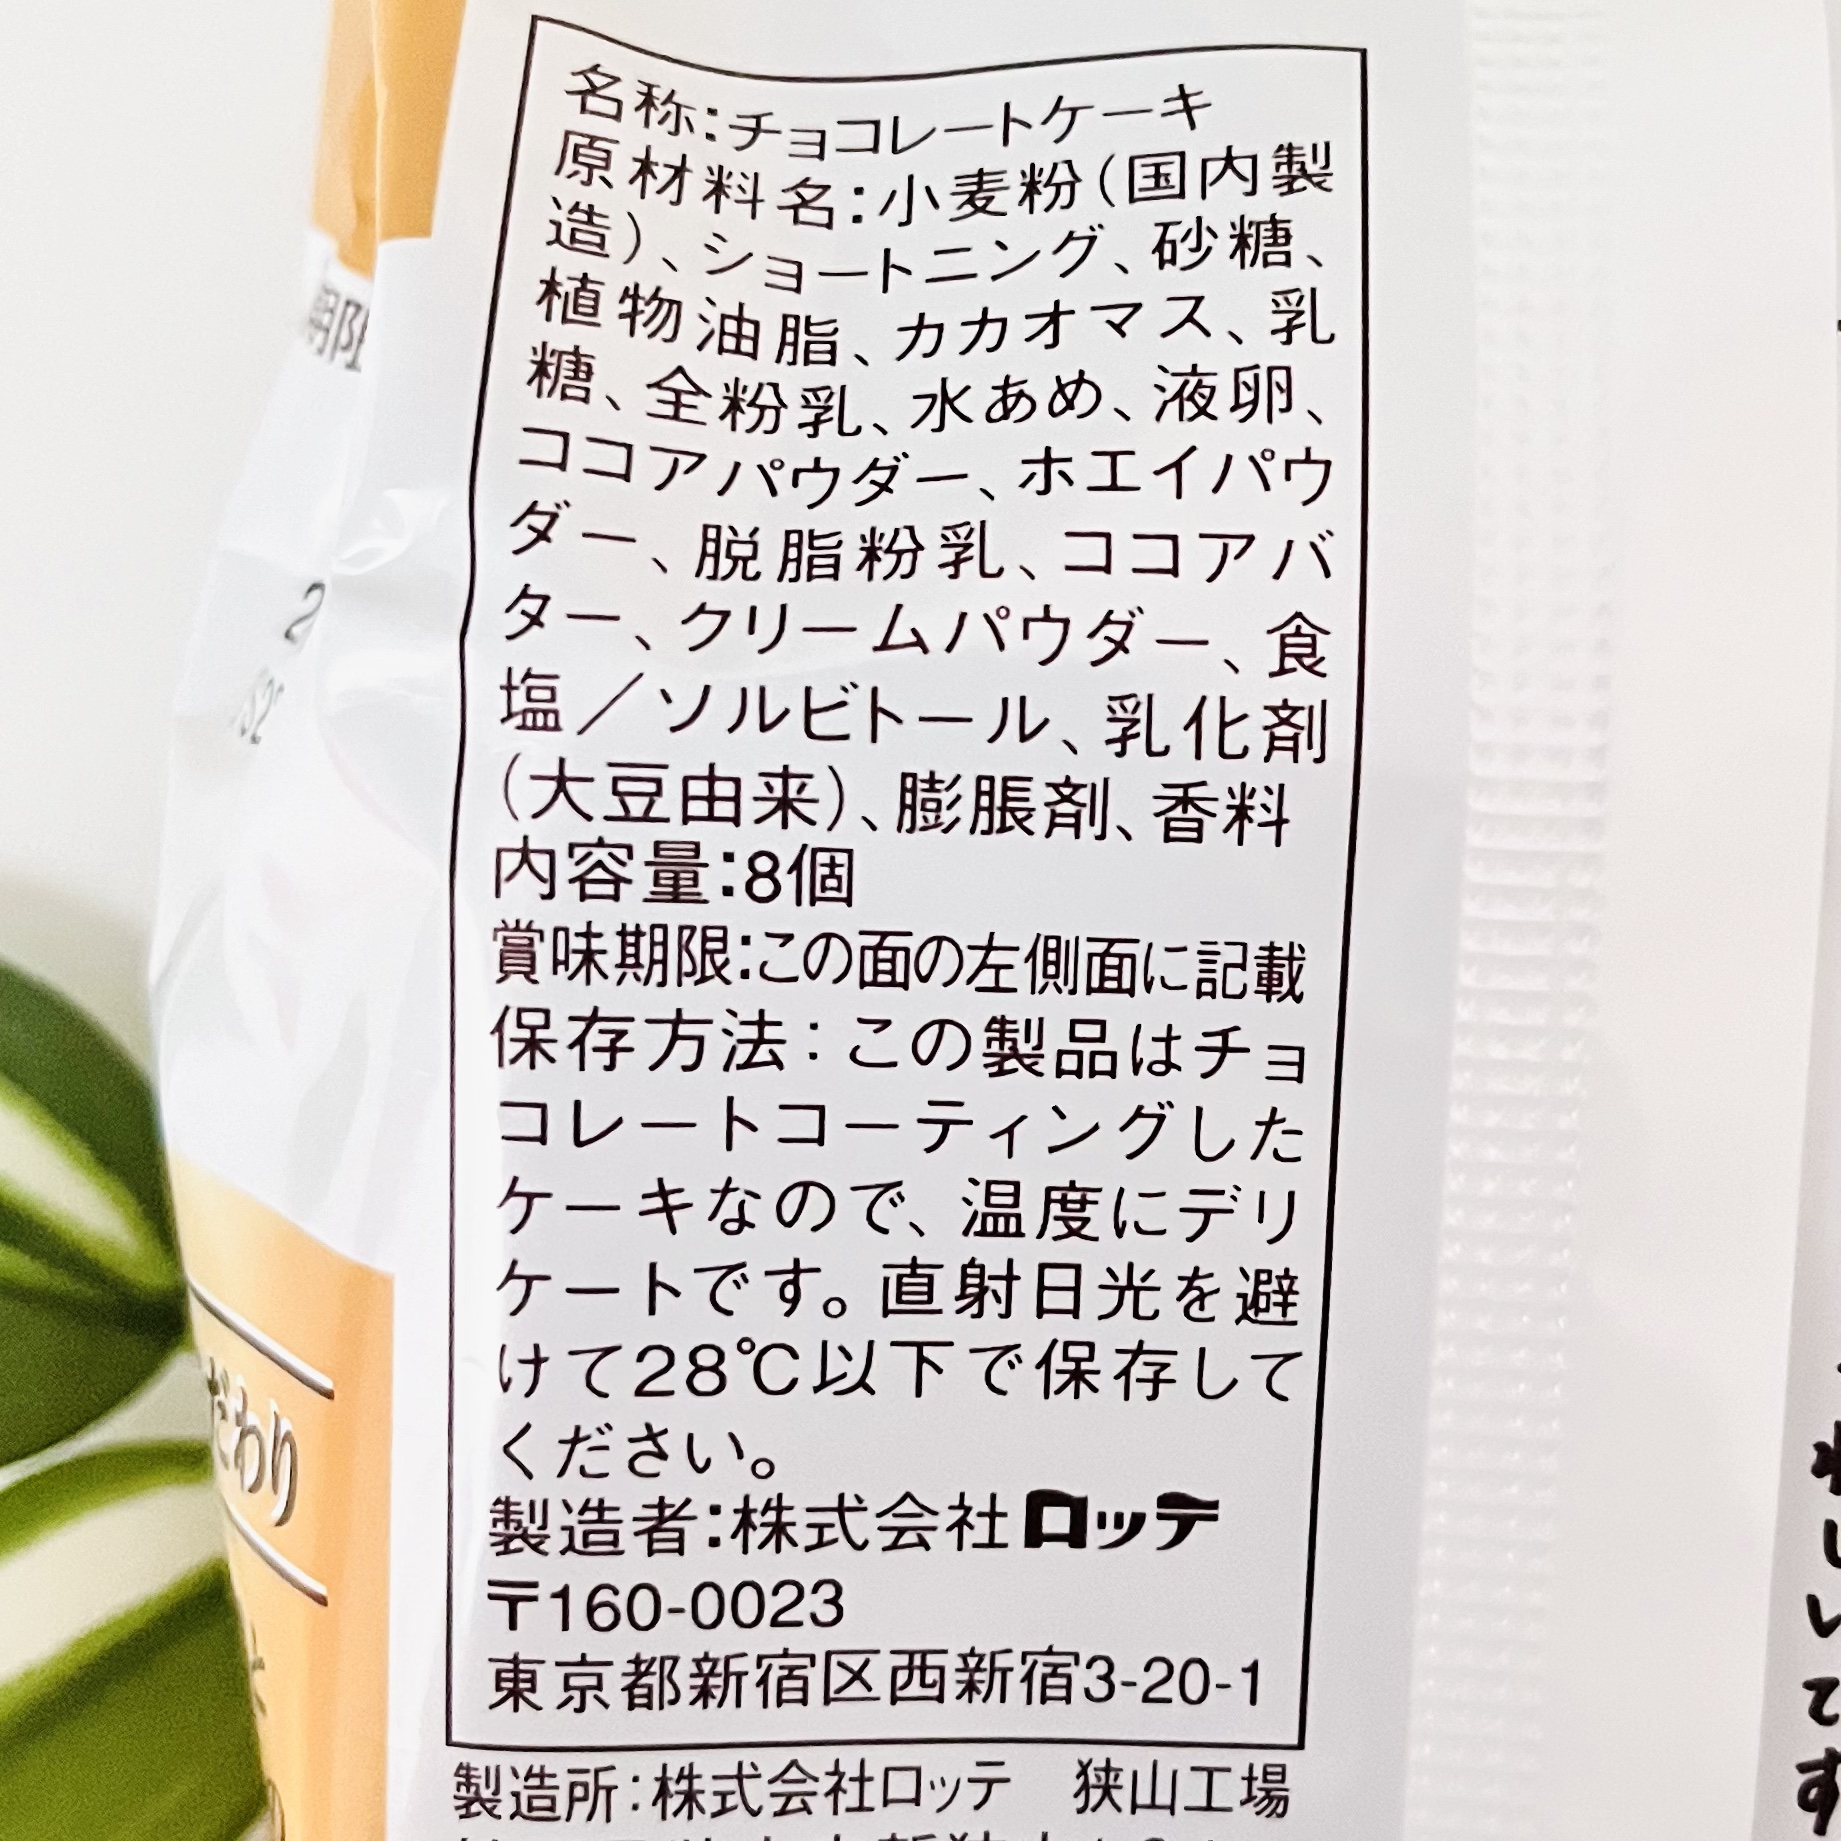 名称:チョコレートケーキ
原材料名:小麦粉(国内製
造)、ショートニング、砂糖、
植物油脂、カカオマス、乳
糖、全粉乳、水あめ、液卵、
ココアパウダー、ホエイパウ
ダー、脱脂粉乳、ココアバ
ター、クリームパウダー、食
塩／ソルビトール、乳化剤
(大豆由来)、膨脹剤、香料
内容量:8個
賞味期限:この面の左側面に記載
保存方法:この製品はチョ
コレートコーティングした
ケーキなので、温度にデリ
ケートです。直射日光を避
けて28℃以下で保存して
ください。
製造者:株式会社ロッテ
〒160-0023
東京都新宿区西新宿3-20-1
製造所:株式会社ロッテ 狭山工場
期限
だわり